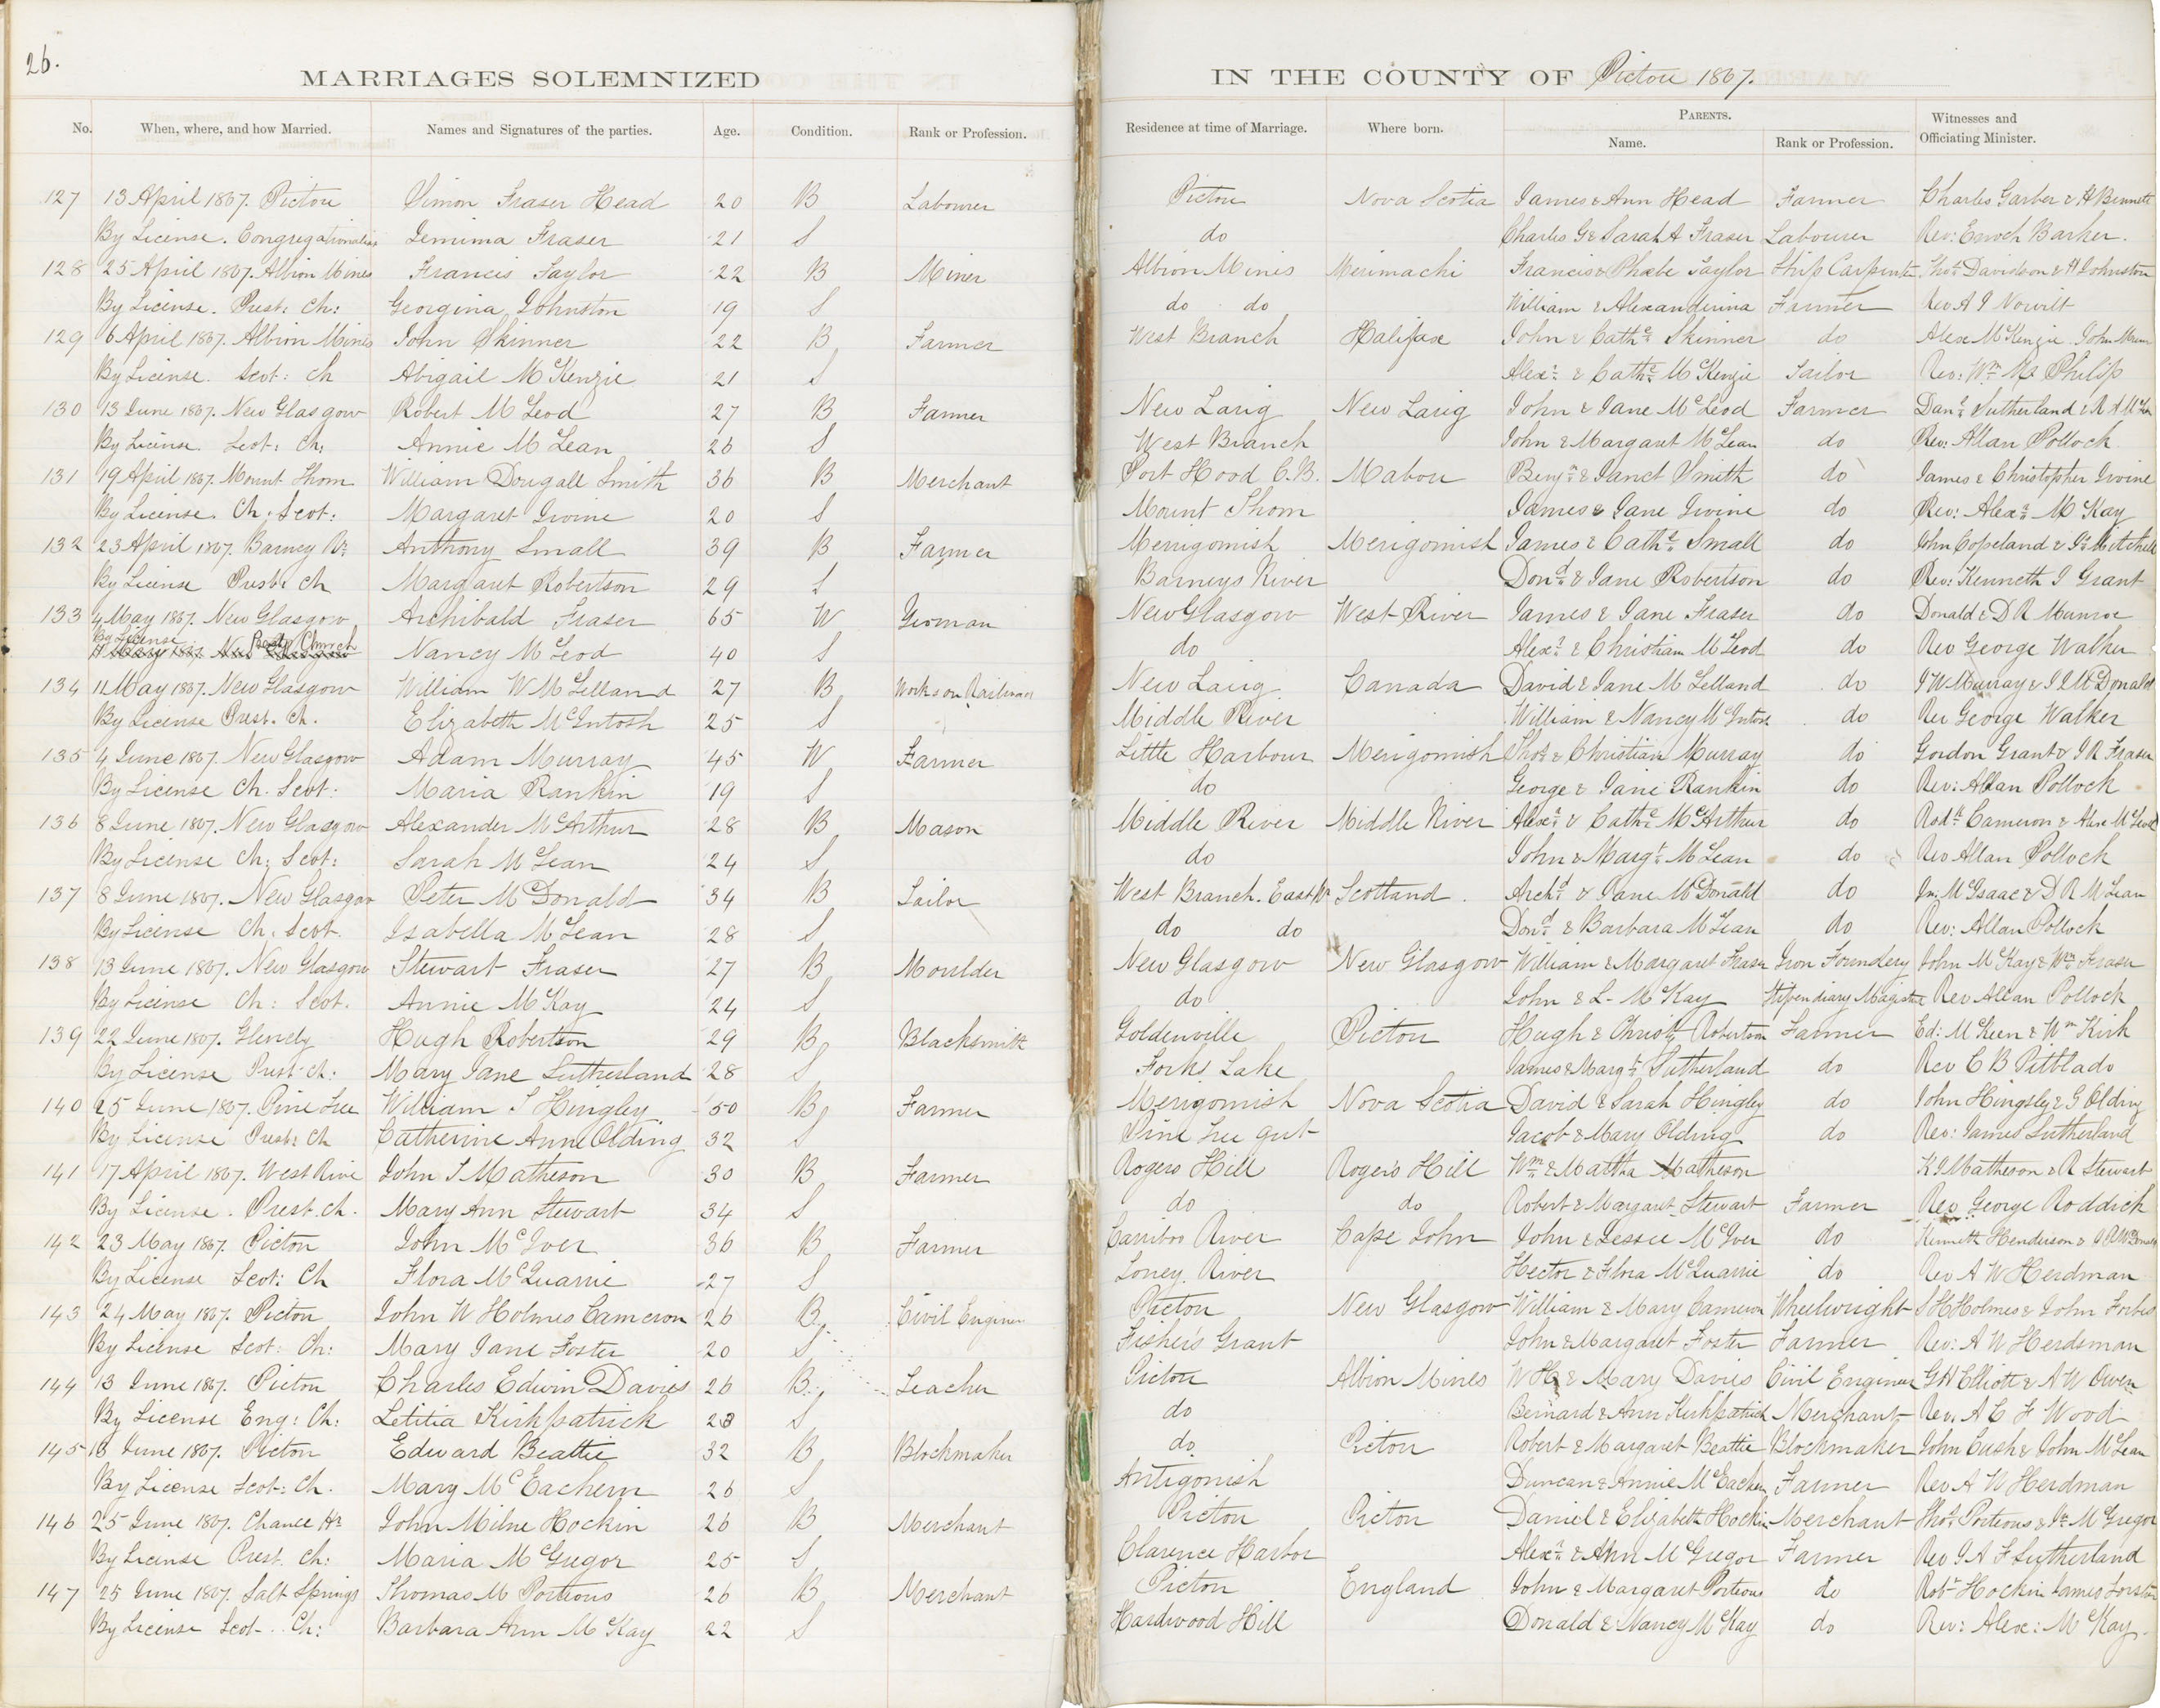 26.
MARRIAGES SOLEMNIZED IN THE COUNTY OF Pictou 1867.
No. When, where, and how Married. Names and Signatures of the parties. Age. Condition. Rank or Profession. Residence at time of Marriage. Where born. PARENTS. Name. Rank or Profession. Witnesses and Officiating Minister.
127 13 April 1867. Pictou Simon Fraser Head 20 B Labourer Pictou Nova Scotia James & Ann Head Farmer Charles Garber & H Bennett
By License. Congregationalist Jemima Fraser 21 S do Charles G & Sarah A Fraser Labourer Rev: Enoch Barker.
128 25 April 1867. Albion Mines Francis Taylor 22 B Miner Albion Mines Merimachi Francis & Phœbe Taylor Ship Carpenter Thos. Davidson & H Johnston
By License. Prest: Ch: Georgina Johnston 19 S do do William & Alexanderina Farmer Rev A J Nowilt
129 6 April 1867. Albion Mines John Skinner 22 B Farmer West Branch Halifax John & Cathe. Skinner do Alex McKenzie John
By License. Scot: Ch Abigail McKenzie 21 S Alexr. & Cathe. McKenzie Tailor Rev: Wm. Mc Philip
130 13 June 1867. New Glasgow Robert McLeod 27 B Farmer New Larig New Larig John & Jane McLeod Farmer Danl. Sutherland & R A McLean
By License Scot: Ch: Annie McLean 26 S West Branch John & Margaret McLean do Rev: Allan Pollock
131 19 April 1867. Mount Thom William Dougall Smith 36 B Merchant Port Hood C.B. Mabou Benjn. & Janet Smith do James & Christopher Irvine
By License. Ch: Scot: Margaret Irvine 20 S Mount Thom James & Jane Irvine do Rev: Alexr. McKay
132 23 April 1867. Barney Rr. Anthony Small 39 B Farmer Merrigomish Merigomish James & Cathe. Small do John Copeland & Js. Mitchell
By License Presb: Ch Margaret Robertson 29 S Barneys River Dond. & Jane Robertson do Rev: Kenneth J Grant
133 4 May 1867. New Glasgow Archibald Fraser 65 W Yeoman New Glasgow West River James & Jane Fraser do Donald & D R Munroe
By License Presby Church Nancy McLeod 40 S do Alexr. & Christian McLeod do Rev George Walker
134 11 May 1867. New Glasgow William W McLelland 27 B Works on Railroad New Lairg Canada David & Jane McLelland do J W Murray & J L McDonald
By License Prest. Ch. Elizabeth McIntosh 25 S Middle River William & Nancy McIntosh do Rev George Walker
135 4 June 1867. New Glasgow Adam Murray 45 W Farmer Little Harbour Merigomish Thos. & Christian Murray do Gordon Grant & J R Fraser
By License Ch. Scot: Maria Rankin 19 S do George & Janie Rankin do Rev: Allan Pollock
136 8 June 1867. New Glasgow Alexander McArthur 28 B Mason Middle River Middle River Alexr. & Cathe. McArthur do Rodk. Cameron & Alex McLeod
By License Ch: Scot: Sarah McLean 24 S do John & Margt. McLean do Rev Allan Pollock
137 8 June 1867. New Glasgow Peter McDonald 34 B Tailor West Branch. East Rr Scotland Archd. & Jane McDonald do Jn: McIsaac & D R McLean
By License Ch: Scot. Isabella McLean 28 S do do Dond. & Barbara McLean do Rev: Allan Pollock
138 13 June 1867. New Glasgow Stewart Fraser 27 B Moulder New Glasgow New Glasgow William & Margaret Fraser Iron Foundery John McKay & Wm. Fraser
By License Ch: Scot. Annie McKay 24 S do John & L- McKay Stipendiary Magistrate Rev Allan Pollock
139 22 June 1867. Glendy Hugh Robertson 29 B Blacksmith Goldenville Pictou Hugh & Christy Robertson Farmer Ed: McKeen & Wm Kirk
By License Prest. Ch: Mary Jane Sutherland 28 S Forks Lake James & Margt. Sutherland do Rev C B Pitblado
140 25 June 1867. Pine Tree William T Hingley 50 B Farmer Merigomish Nova Scotia David & Sarah Hingley do John Hingsley & G Olding
By License Presb: Ch Catherine Anne Olding 32 S Pine Tree gut Jacob & Mary Olding do Rev: James Sutherland
141 17 April 1867. West River John T Matheson 30 B Farmer Rogers Hill Roger's Hill Wm. & Martha Matheson K J Matheson & R Stewart
By License. Prest. ch. Mary Ann Stewart 34 S do do Robert & Margaret Stewart Farmer Rev George Roddick
142 23 May 1867. Pictou John McIver 36 B Farmer Carriboo River Cape John John & Jessie McIver do Kenneth Henderson & J R McDonald
By License Scot: Ch Flora McQuarrie 27 S Toney River Hector & Flora McQuarrie do Rev A W Herdman
143 24 May 1867. Pictou John W Holmes Cameron 26 B Civil Engineer Pictou New Glasgow William & Mary Cameron Wheelwright S H Holmes & John Forbes
By License Scot: Ch: Mary Jane Foster 20 S Fisher's Grant John & Margaret Foster Farmer Rev: A W Herdsman
144 13 June 1867. Pictou Charles Edwin Davies 26 B Teacher Pictou Albion Mines W H & Mary Davies Civil Engineer G H Elliott & A W Owen
By License Eng: Ch: Letitia Kirkpatrick 23 S do Bernard & Ann Kirkpatrick Merchant Rev. A C F Wood
145 13 June 1867. Pictou Edward Beattie 32 B Blockmaker do Pictou Robert & Margaret Beattie Blockmaker John Cush & John McLean
By License Scot: Ch. Mary McEachern 26 S Antigonish Duncan & Annie McEachern Farmer Rev A W Herdman
146 25 June 1867. Chance Hr. John Milne Hockin 26 B Merchant Pictou Pictou Daniel & Elizabeth Hockin Merchant Thos. Porteous & Js. McGregor
By License Prest. Ch: Maria McGregor 25 S Clarence Harbor Alexr. & Ann McGregor Farmer Rev J A F Sutherland
147 25 June 1867. Salt Springs Thomas M Porteous 26 B Merchant Pictou England John & Margaret Porteous do Robt Hockin James
By License Scot. Ch: Barbara Ann McKay 22 S Hardwood Hill Donald & Nancy McKay do Rev: Alex: McKay.